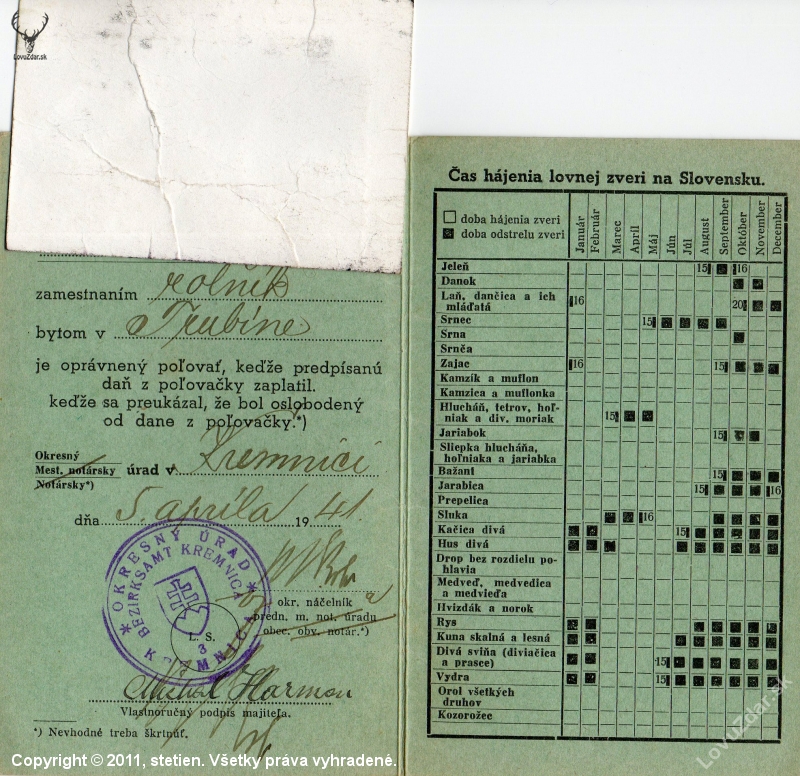 LovuZdar.sk
zamestnaním rolník
bytom v Trubíne
je oprávnený poľovať, keďže predpísanú
daň z poľovačky zaplatil.
keďže sa preukázal, že bol oslobodený
od dane z poľovačky.*)
Okresný
Mest. notársky úrad v Kremnici
Notársky*)
dňa 5. apríla 1941
OKRESNÝ ÚRAD
BEZIRKSAMT KREMNICA
KREMNICA
3
okr. náčelník
predn. m. not. úradu
obec. obv. notár.*)
L. S.
Michal Harman
Vlastnoručný podpis majiteľa.
*) Nevhodné treba škrtnúť.
Copyright © 2011, stetien. Všetky práva vyhradené.
Čas hájenia lovnej zveri na Slovensku.
doba hájenia zveri
doba odstrelu zveri
Január
Február
Marec
Apríl
Máj
Jún
Júl
August
September
Október
November
December
Jeleň 15 16
Danok
Laň, dančica a ich
mláďatá 16 20
Srnec 15
Srna
Srnča
Zajac 16 15
Kamzík a muflon
Kamzica a muflonka
Hlucháň, tetrov, hoľ-
niak a div. moriak 15
Jariabok 15
Sliepka hlucháňa,
hoľniaka a jariabka
Bažant 15
Jarabica 15 16
Prepelica
Sluka 16
Kačica divá 15
Hus divá
Drop bez rozdielu po-
hlavia
Medveď, medvedica
a medvieďa
Hvizdák a norok
Rys
Kuna skalná a lesná
Divá sviňa (diviačica
a prasce) 15
Vydra 15
Orol všetkých
druhov
Kozorožec
LovuZdar.sk